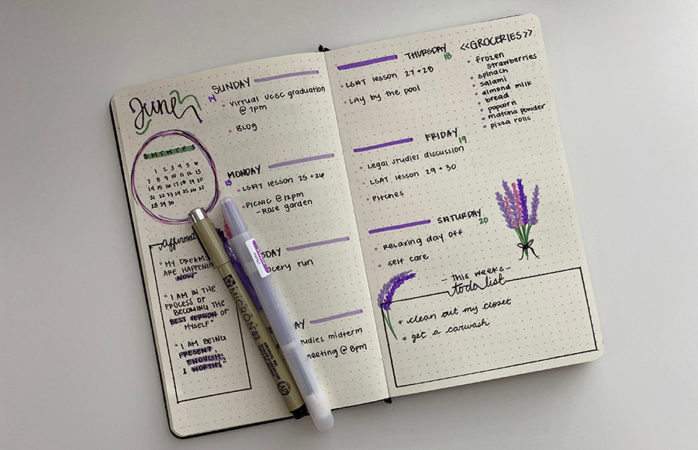 June
S M T W T F S
1 2 3 4 5 6
7 8 9 10 11 12 13
14 15 16 17 18 19 20
21 22 23 24 25 26 27
28 29 30
"MY DREAMS
ARE HAPPENING
NOW"
"I AM IN THE
PROCESS OF
BECOMING THE
BEST VERSION OF
MYSELF"
"I AM BEING
PRESENT,
ENOUGH,
WORTHY
SUNDAY
14
Virtual UCSC graduation
@ 1pm
BLOG
MONDAY
15
LSAT lesson 25 + 26
PICNIC @ 12pm
- Rose garden
run
midterm
@ 8pm
MICRON 03
THURSDAY
18
LSAT lesson 27 + 28
Lay by the pool
FRIDAY
19
Legal studies discussion
LSAT lesson 29 + 30
Pitches
SATURDAY
20
Relaxing day off
self care
<<GROCERIES>>
frozen
strawberries
spinach
salami
almond milk
bread
popcorn
matcha powder
pizza rolls
- This weeks -
todo list
clean out my closet
get a carwash